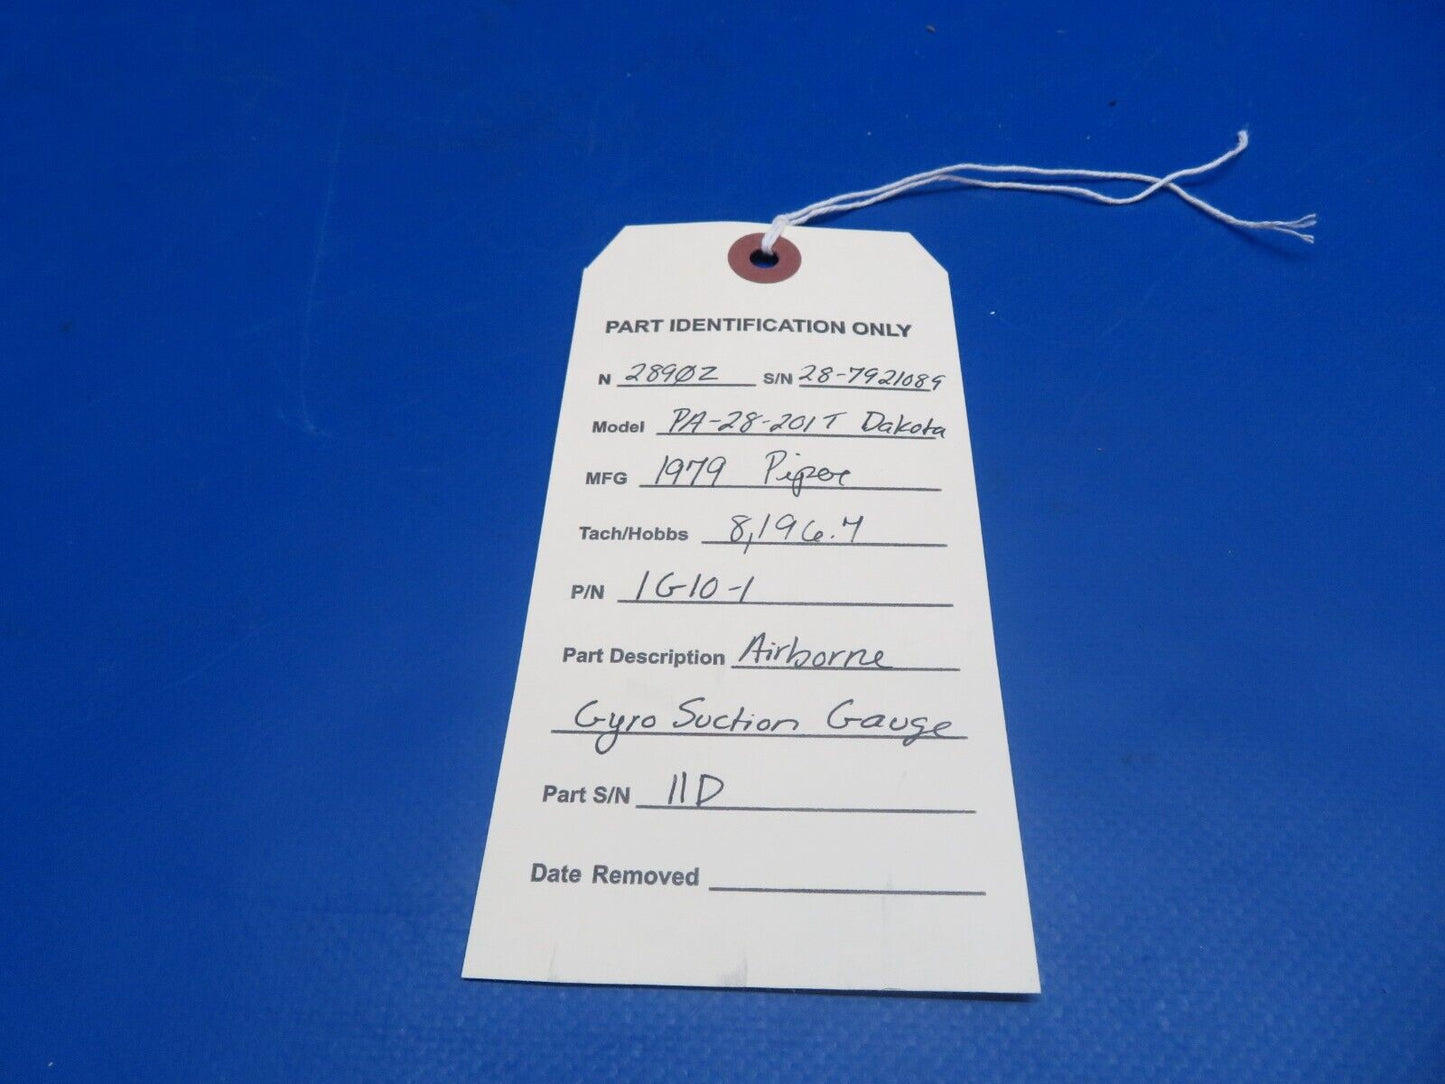 PART IDENTIFICATION ONLY
N 2890Z S/N 28-7921089
Model PA-28-201T Dakota
MFG 1979 Piper
Tach/Hobbs 8,196.4
P/N 1G10-1
Part Description Airborne
Gyro Suction Gauge
Part S/N 11D
Date Removed